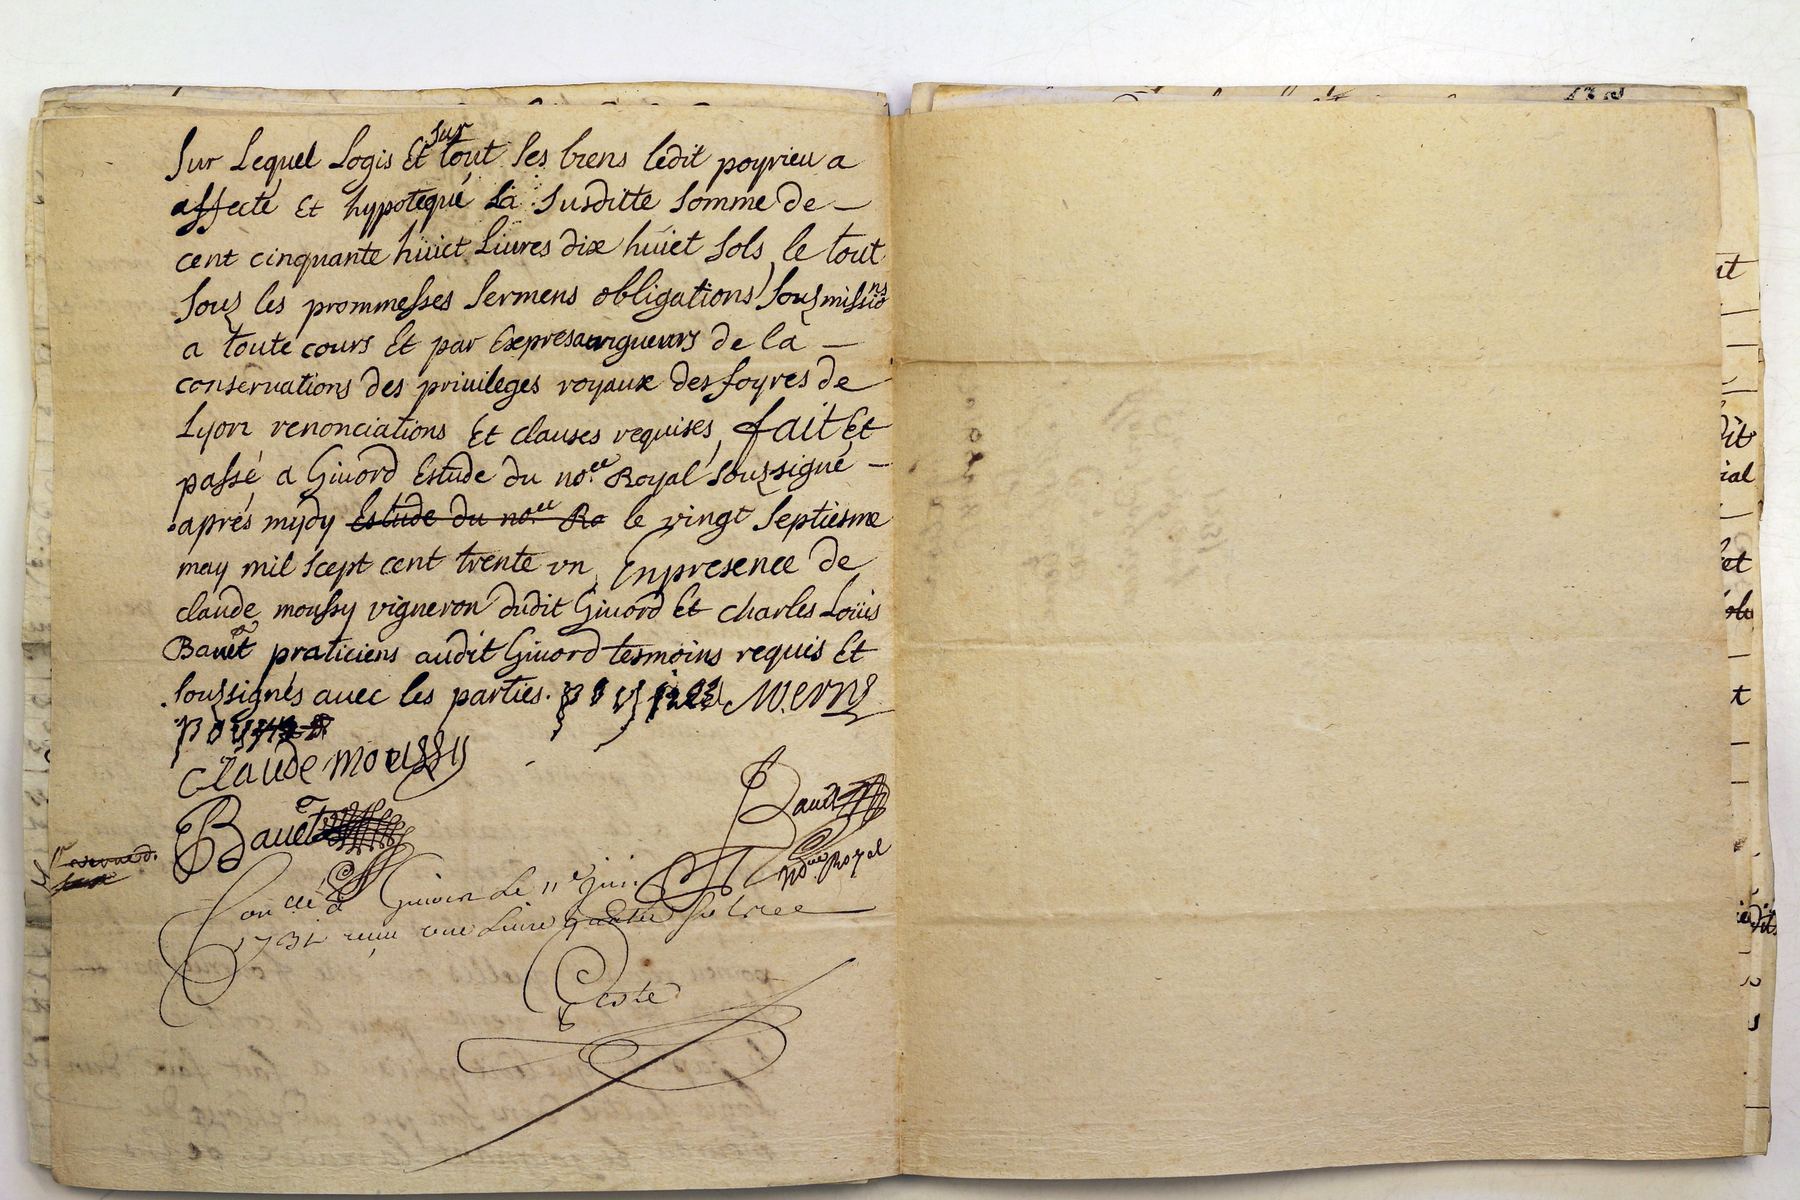 Sur Lequel Logis Et sur tout ses biens ledit poyrieu a
affecté Et hypotequé La Susditte Somme de
cent cinquante huict Livres dix huiet Sols, le tout
Souz les prommesses Sermens obligations Souzmissions
a toute cours Et par Expres aux rigueurs de la
conservations des privileges royaux des foyres de
Lyon renonciations Et clauses requises, fait Et
passé a Givord Estude du no.re Royal Souzsigné
aprés mydy Estude du no.re Ro le vingt Septiesme
may mil Sept cent trente un, En presence de
claude moussy vigneron dudit Givord Et charles Loüis
Bavet praticiens audit Givord tesmoins requis Et
Souzsignés avec les parties.
Claude moussy
Bavet
no.re Royal
à Givors Le 11e juin
1731 reçu une Livre